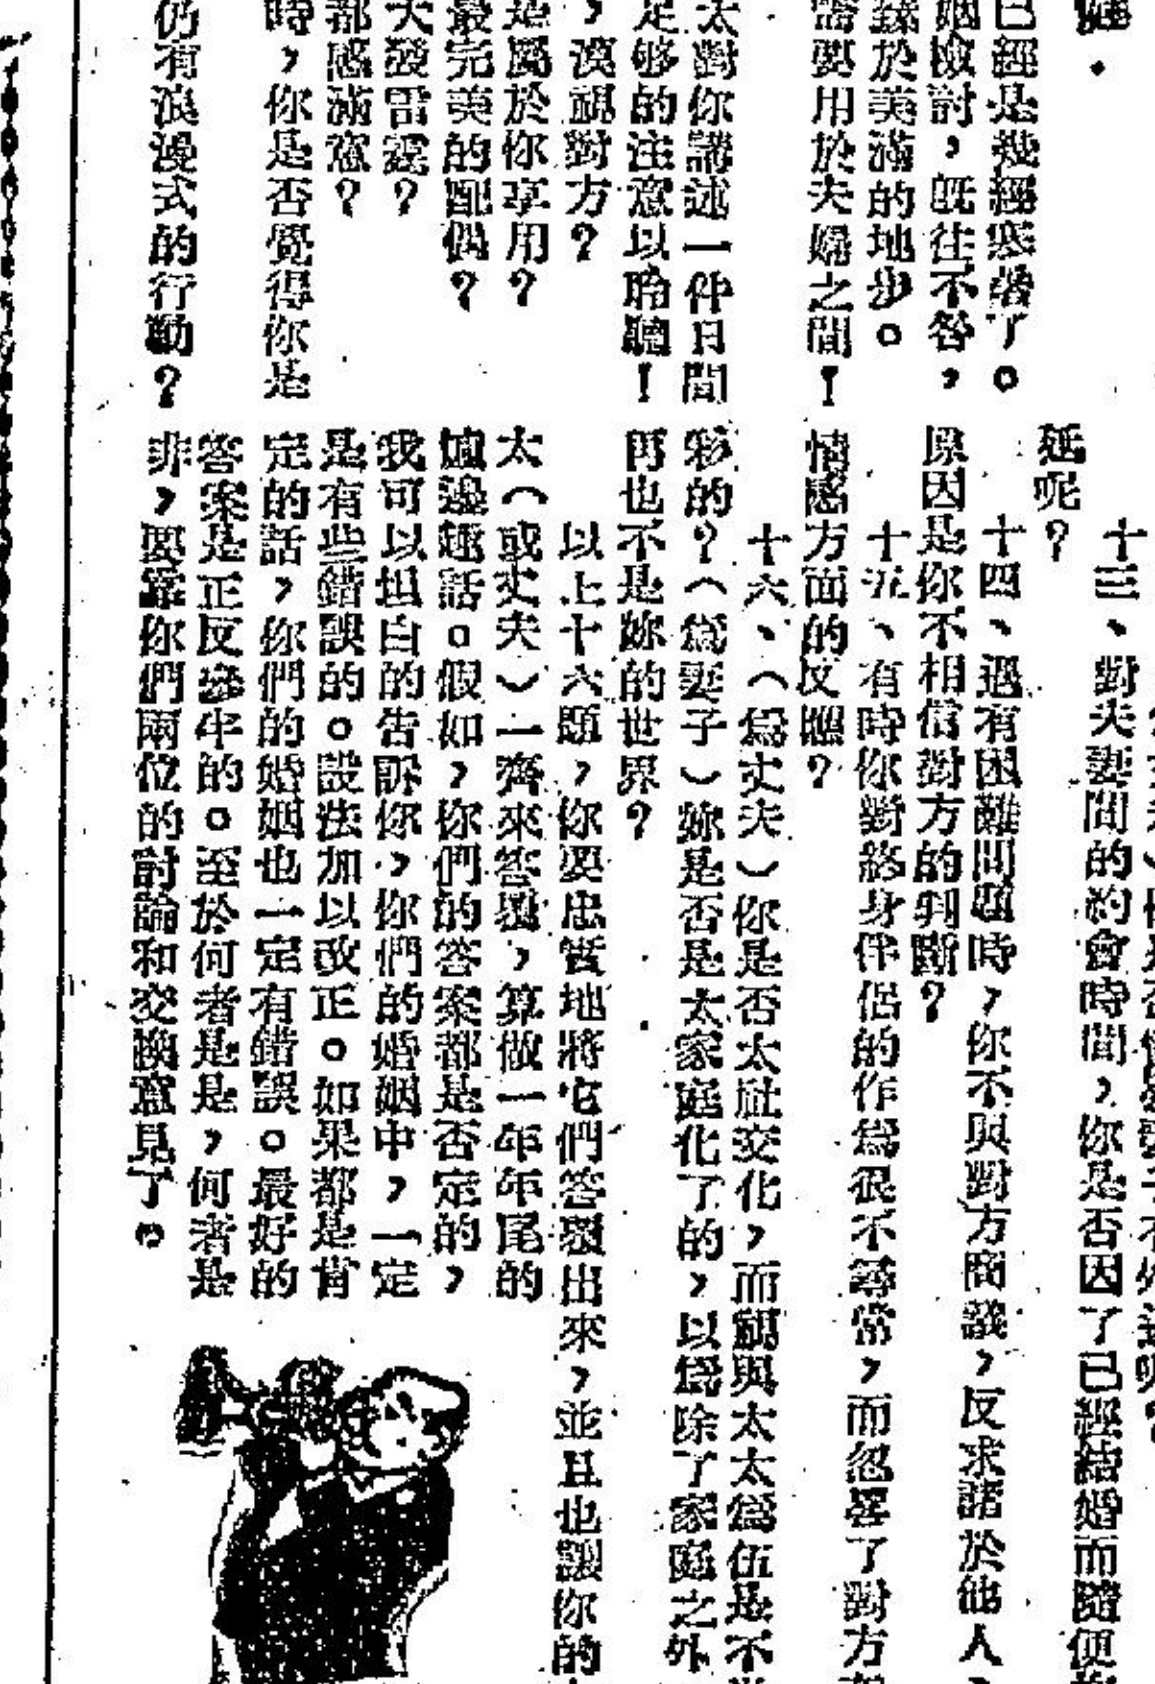 已經是幾經寒暑了。
姻檢討,既往不咎,
臻於美滿的地步。
需要用於夫婦之間!
太對你講述一件日間
足够的注意以聆聽!
,漠視對方?
是屬於你享用?
最完美的配偶?
大發雷霆?
都感滿意?
時,你是否覺得你是
仍有浪漫式的行動?
十三、對夫妻間的約會時間,你是否因了已經結婚而隨便
延呢?
十四、遇有困難問題時,你不與對方商議,反求諸於他人,
原因是你不相信對方的判斷?
十五、有時你對終身伴侶的作爲很不尋常,而忽畧了對方
情感方面的反應?
十六、(爲丈夫)你是否太社交化,而視與太太爲伍是不
彩的?(爲妻子)妳是否是太家庭化了的,以爲除了家庭之外
再也不是妳的世界?
以上十六題,你要忠實地將它們答覆出來,並且也讓你的
太(或丈夫)一齊來答覆,算做一年年尾的
爐邊趣話。假如,你們的答案都是否定的,
我可以坦白的告訴你,你們的婚姻中,一定
是有些錯誤的。設法加以改正。如果都是肯
定的話,你們的婚姻也一定有錯誤。最好的
答案是正反參半的。至於何者是是,何者是
非,要靠你們兩位的討論和交換意見了。